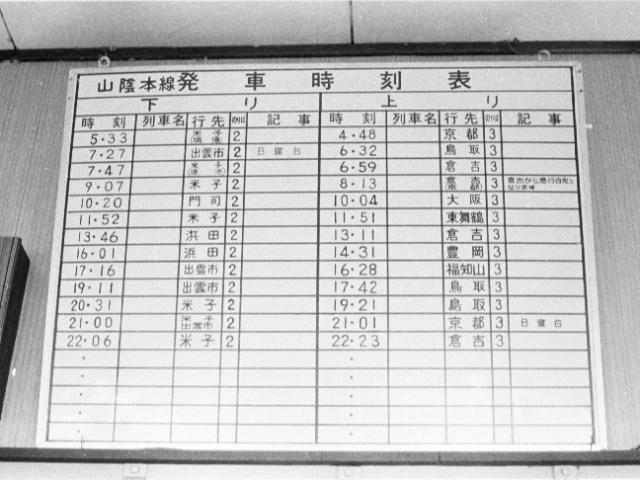 山陰本線発車時刻表
下り 上り
時刻 列車名 行先 のりば 記事 時刻 列車名 行先 のりば 記事
5・33 米子 2 4・48 京都 3
7・27 出雲市 2 B寝台 6・32 鳥取 3
7・47 米子 2 6・59 倉吉 3
9・07 米子 2 8・13 倉吉(京都) 3 倉吉から急行白兎となります
10・20 門司 2 10・04 大阪 3
11・52 米子 2 11・51 東舞鶴 3
13・46 浜田 2 13・11 倉吉 3
16・01 浜田 2 14・31 豊岡 3
17・16 出雲市 2 16・28 福知山 3
19・11 出雲市 2 17・42 鳥取 3
20・31 米子 2 19・21 鳥取 3
21・00 米子出雲市 2 21・01 京都 3 B寝台
22・06 米子 2 22・23 倉吉 3